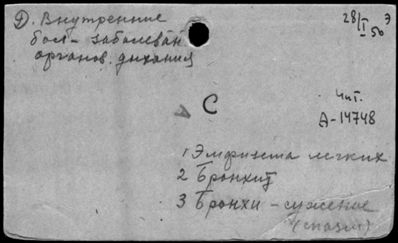 Д. Внутренние
бол - заболеван
органов дыхания
28/II 50 Э
С
Чит.
А-14748
1 Эмфизема легких
2 Бронхит
3 Бронхи - сужение
(спазм)